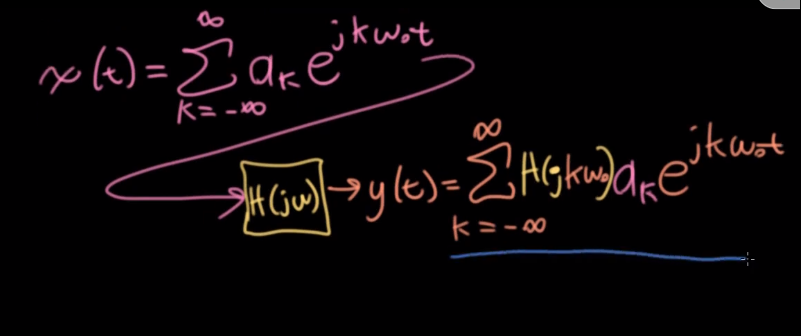 x(t) = ∑_{k=-∞}^{∞} a_k e^{jkω₀t}
H(jω) → y(t) = ∑_{k=-∞}^{∞} H(jkω₀) a_k e^{jkω₀t}